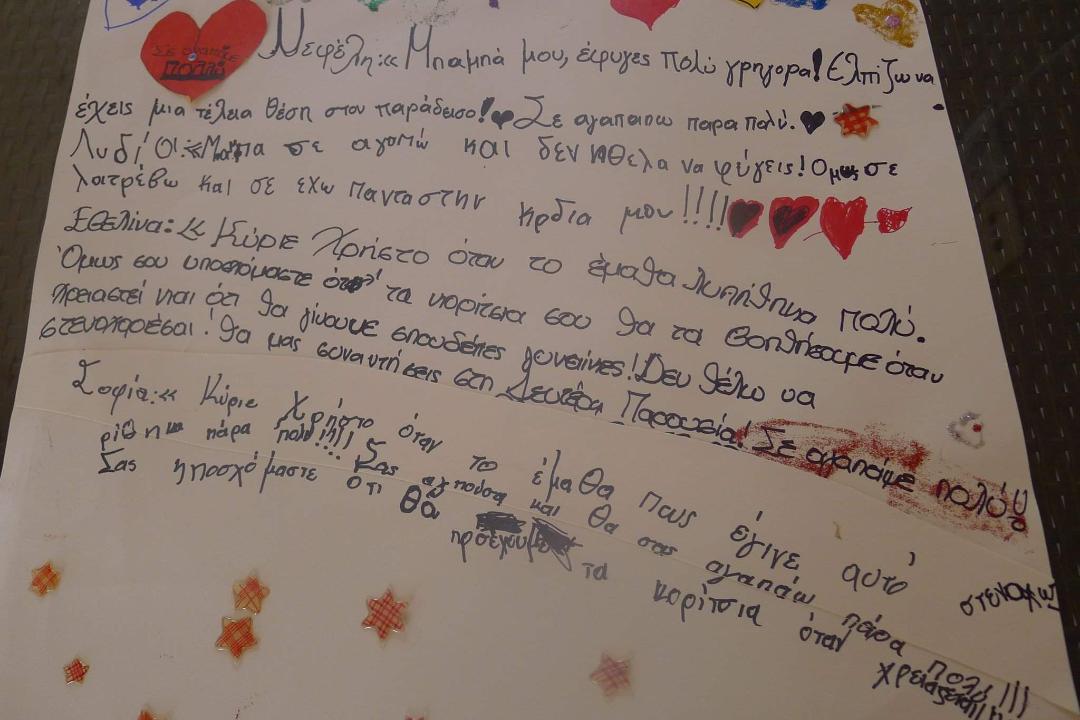 Σε αγαπάω
πολύ
Νεφέλη:« Μπαμπά μου, έφυγες πολύ γρηγορα! Ελπίζω να
έχεις μια τέλεια θέση στον παράδεισο! Σε αγαπαπω παρα πολύ.
Λυδί οι:«Μαμπα σε αγαπώ και δεν ηθελα να φύγεις! Ομως σε
λατρέβω και σε εχω παντα στην κρδια μου!!!!
Εβελίνα:« Κύριε Χρήστο όταν το έμαθα λυπήθηκα πολύ.
Όμως σου υποσχόμαστε ότι τα κορίτσια σου θα τα βοηθήσουμε όταν
χρειαστεί και ότι θα γίνουμε σπουδέες γυναίκες! Δεν θέλω να
στεναχορέσαι! Θα μας συναντήσεις στη Δευτέρα Παρουσία! Σε αγαπάμε πολύ!!
Σοφία:« Κύριε Χρήστο όταν το έμαθα πως έγινε αυτό στεναχω
ρίθηκα πάρα πολύ!!!! Σας αγαπούσα και θα σας αγαπάω πάρα πολύ!!!
Σας ηποσχόμαστε ότι θα προσέχουμε τα κορίτσια όταν χρειάζεται!!!